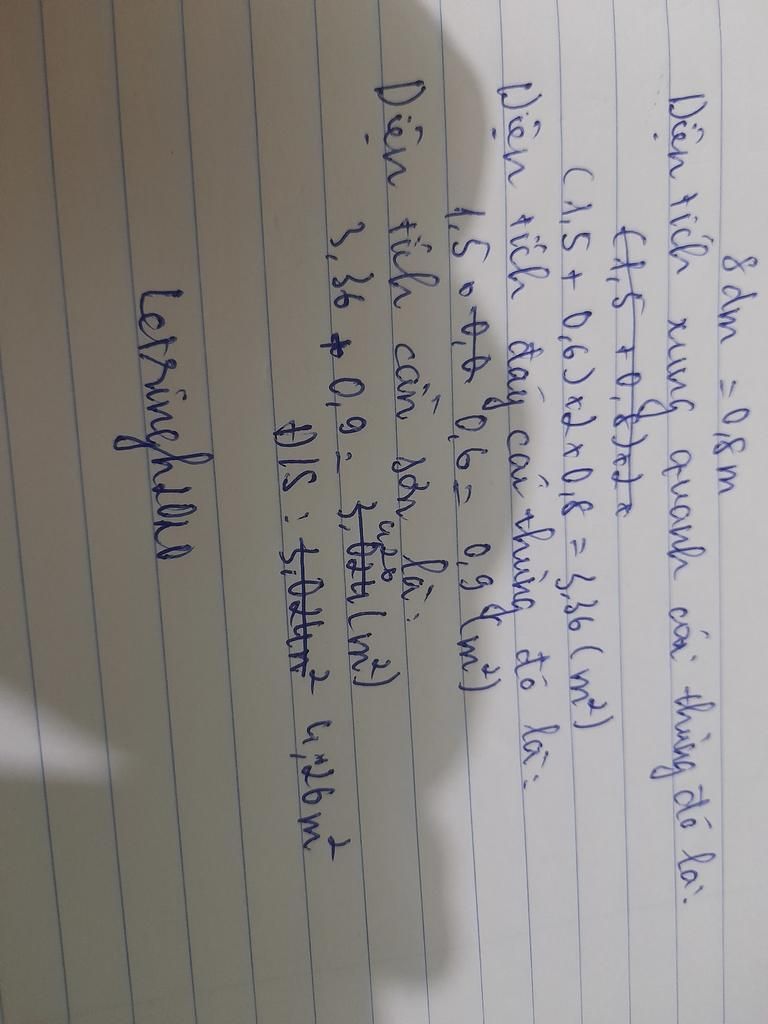 8 dm = 0,8m
Diện tích xung quanh cái thùng đó là:
(1,5 + 0,8)x2x
(1,5 + 0,6)x2x0,8 = 3,36 (m²)
Diện tích đáy cái thùng đó là:
1,5 x 0,6 = 0,9 (m²)
Diện tích cần sơn là:
3,36 + 0,9 = 3,024 4,26 (m²)
Đ/S: 3,024m² 4,26m²